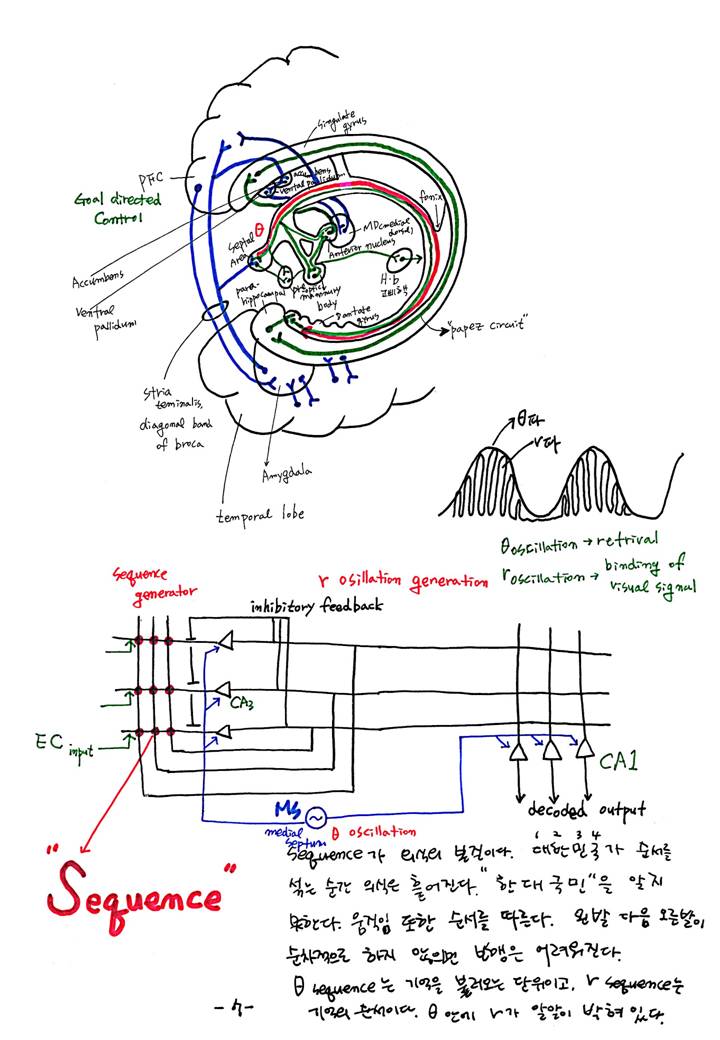 singulate gyrus
PFC
Goal directed Control
accumbens
ventral pallidum
fornix
θ
septal Area
MD(medial dorsal)
Anterior nucleus
Accumbens
Ventral pallidum
para-hippocampal
preoptic
mammary body
H·b
Dantate girus
"papez circuit"
stria teminalis,
diagonal band
of broca
Amygdala
temporal lobe
θ파
r파
θoscillation → retrival
roscillation → binding of visual signal
sequence generator
r osillation generation
inhibitory feedback
CA3
EC input
CA1
MS
medial septum
θ oscillation
decoded output
"Sequence"
1 2 3 4
sequence가 의식의 발걸이다. 대한민국가 순서를
섞는 순간 의식은 흩어진다. "한대국민"을 알지
못한다. 움직임 또한 순서를 따른다. 왼발 다음 오른발이
순차적으로 하지 않으면 보행은 어려워진다.
θ sequence는 기억을 불러오는 단위이고, r sequence는
기억의 순서이다. θ 안에 r가 알알이 박혀 있다.
- 7 -